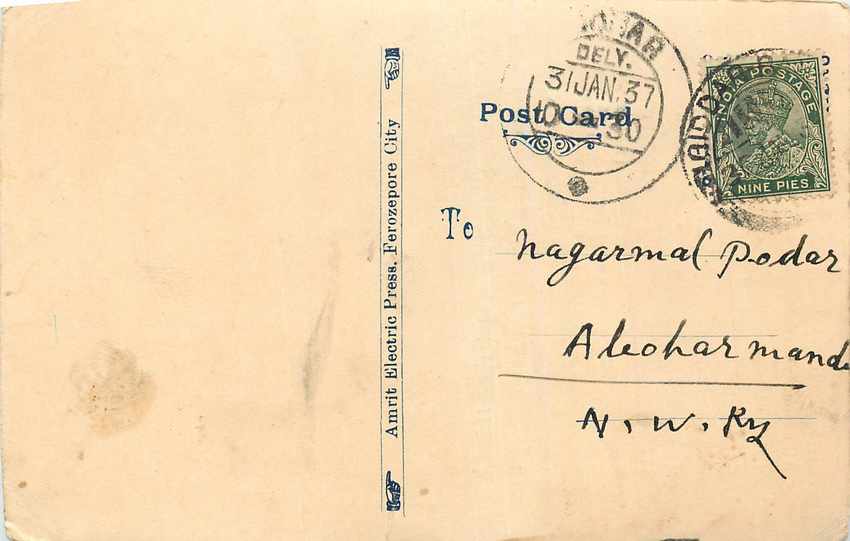 Amrit Electric Press, Ferozepore City
Post Card
DELY.
31 JAN. 37
INDIA POSTAGE
NINE PIES
To
Nagarmal Podar
Abohar mandi
N. W. Ry